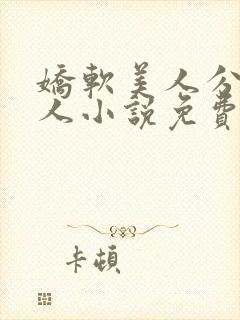 嬌軟美人分
人小說免費
卡頓